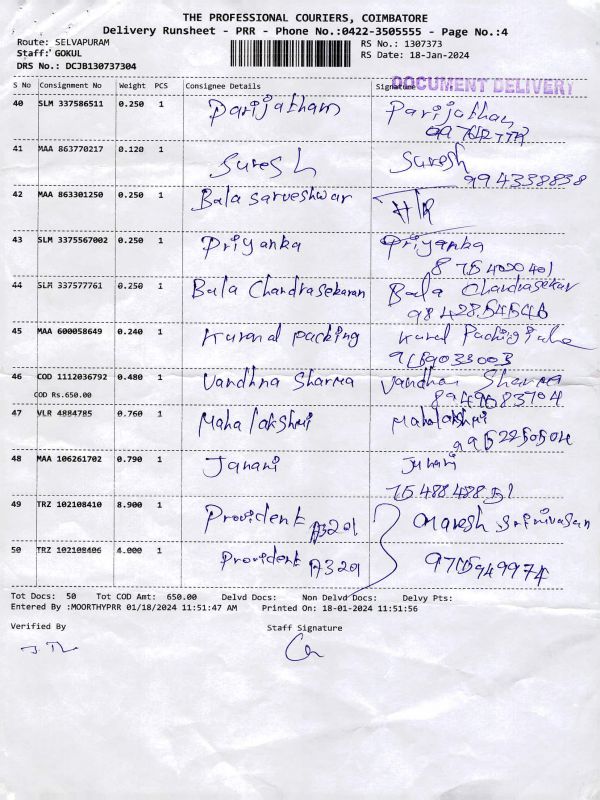 THE PROFESSIONAL COURIERS, COIMBATORE
Delivery Runsheet - PRR - Phone No.:0422-3505555 - Page No.:4
Route: SELVAPURAM RS No.: 1307373
Staff: GOKUL RS Date: 18-Jan-2024
DRS No.: DCJB130737304
DOCUMENT DELIVERY
S No Consignment No Weight PCS Consignee Details Signature
40 SLM 337586511 0.250 1 Parijatham Parijatham
41 MAA 863770217 0.120 1 Suresh Suresh
994338838
42 MAA 863301250 0.250 1 Bala Sarveshwar
43 SLM 3375567002 0.250 1 Priyanka Priyanka
44 SLM 337577761 0.250 1 Bala Chandrasekaran Bala Chandrasekar
45 MAA 600058649 0.240 1 packing
9159033003
46 COD 1112036792 0.480 1 Vandhna Sharma Sharma
COD Rs.650.00
47 VLR 4884785 0.760 1 Mahalakshmi Mahalakshmi
48 MAA 106261702 0.790 1 Janani Janani
49 TRZ 102108410 8.900 1 Provident A3201 Maresh Srinivasan
50 TRZ 102108406 4.000 1 Provident A3201 9715949974
Tot Docs: 50 Tot COD Amt: 650.00 Delvd Docs: Non Delvd Docs: Delvy Pts:
Entered By :MOORTHYPRR 01/18/2024 11:51:47 AM Printed On: 18-01-2024 11:51:56
Verified By Staff Signature